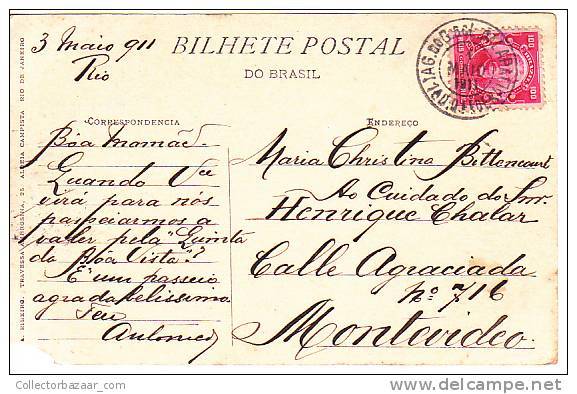 3 Maio 911
Rio
BILHETE POSTAL
DO BRASIL
100 100
MAIO
1911
A. RIBEIRO, TRAVESSA 25 ALDEIA CAMPISTA RIO DE JANEIRO
CORRESPONDENCIA
ENDEREÇO
Bôa mamãe
Quando Vce
virá para nós
passeiarmos a
valer pela "Quinta
da Bôa Vista"?
É um passeio
agradabelissimo
Teu
Antonico
Maria Christina Bittencourt
Ao Cuidado do Snr.
Henrique Chalar
Calle Agraciada
Nº 716
Montevideo
Collectorbazaar_com
delcampe.net